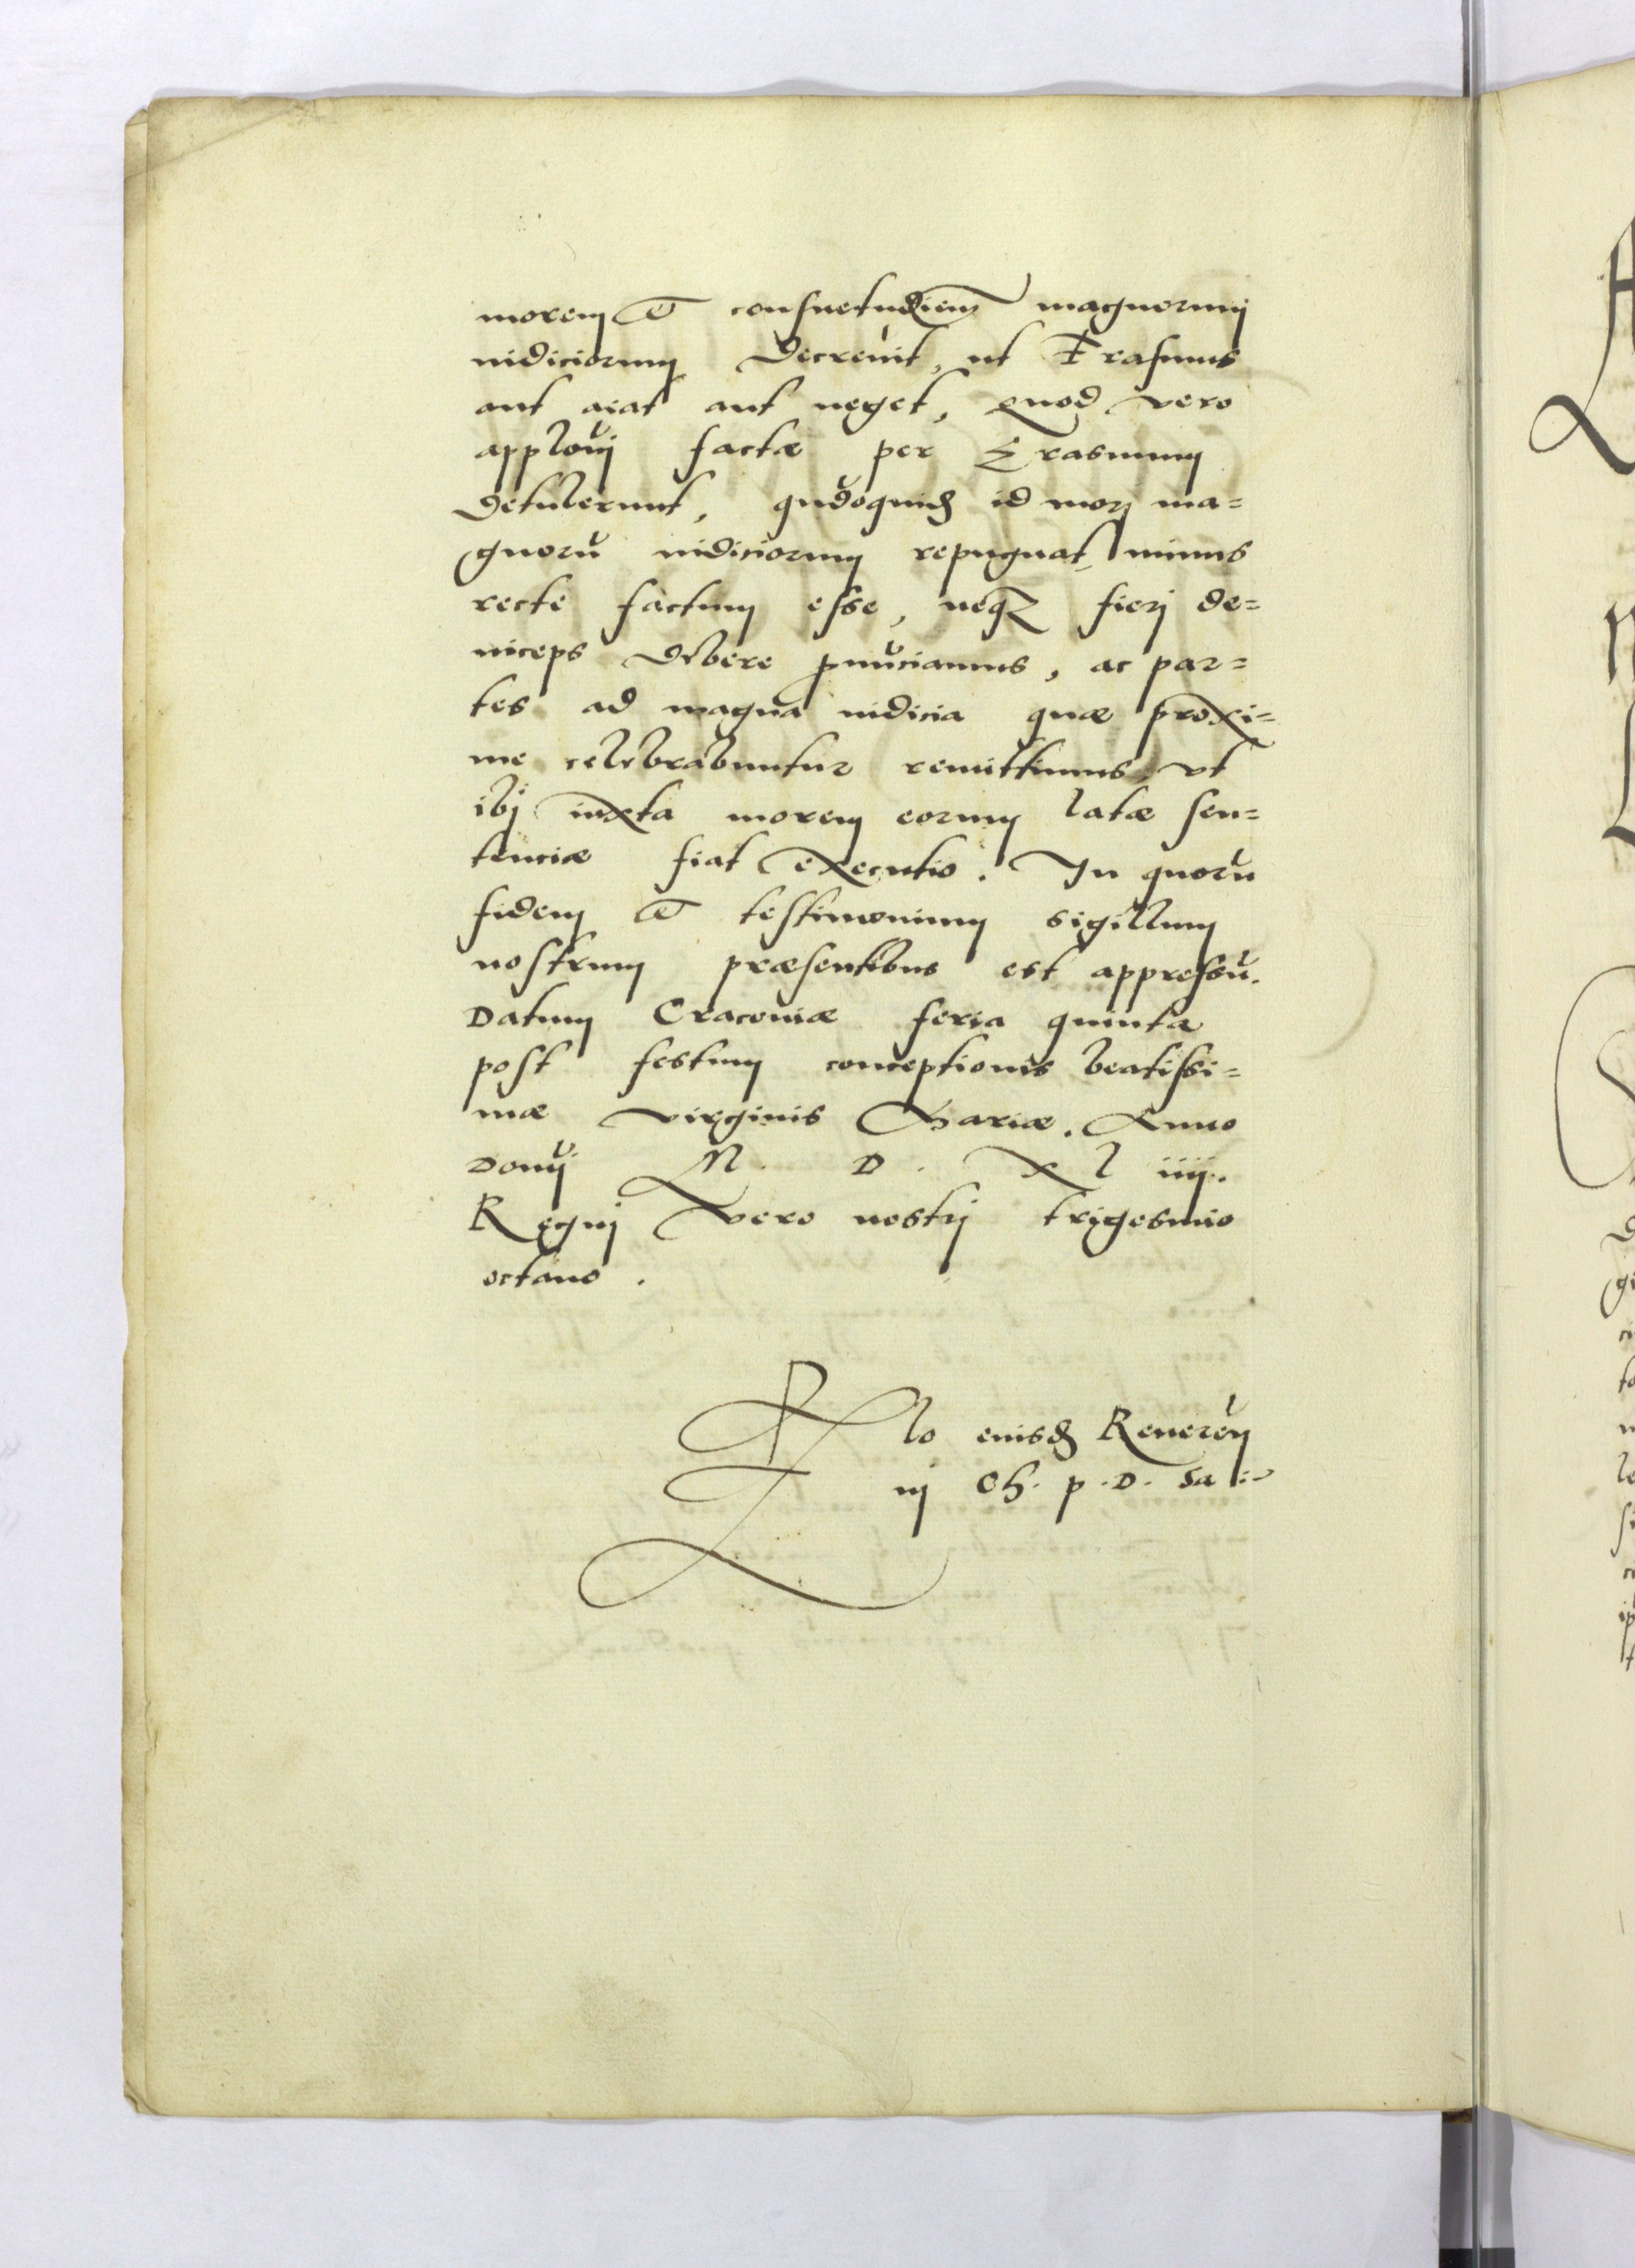 morem et consuetudiem magnorum
iudiciorum decrevit, ut Erasmus
aut aiat aut neget, quod vero
appłoni factæ per Erasmum
detulerunt, quūdoquid id mori ma=
gnorū iudiciorum repugnat, minus
recte factum esse, neq fieri de=
inceps debere pnūciamus, ac par=
tes ad magna iudicia quæ proxi=
me celebrabuntur remittimus, ut
ibi iuxta morem eorum latæ sen=
tenciæ fiat executio. In quorū
fidem et testimonium sigillum
nostrum præsentibus est appressū.
Datum Cracoviæ feria quinta
post festum conceptionis beatissi=
mæ virginis Mariæ. Anno
Domi M. D. XL iiij.
Regni vero nostri trigesimo
octavo.
Rlo eiusd Reveren
ni Ch. p. D. Sa